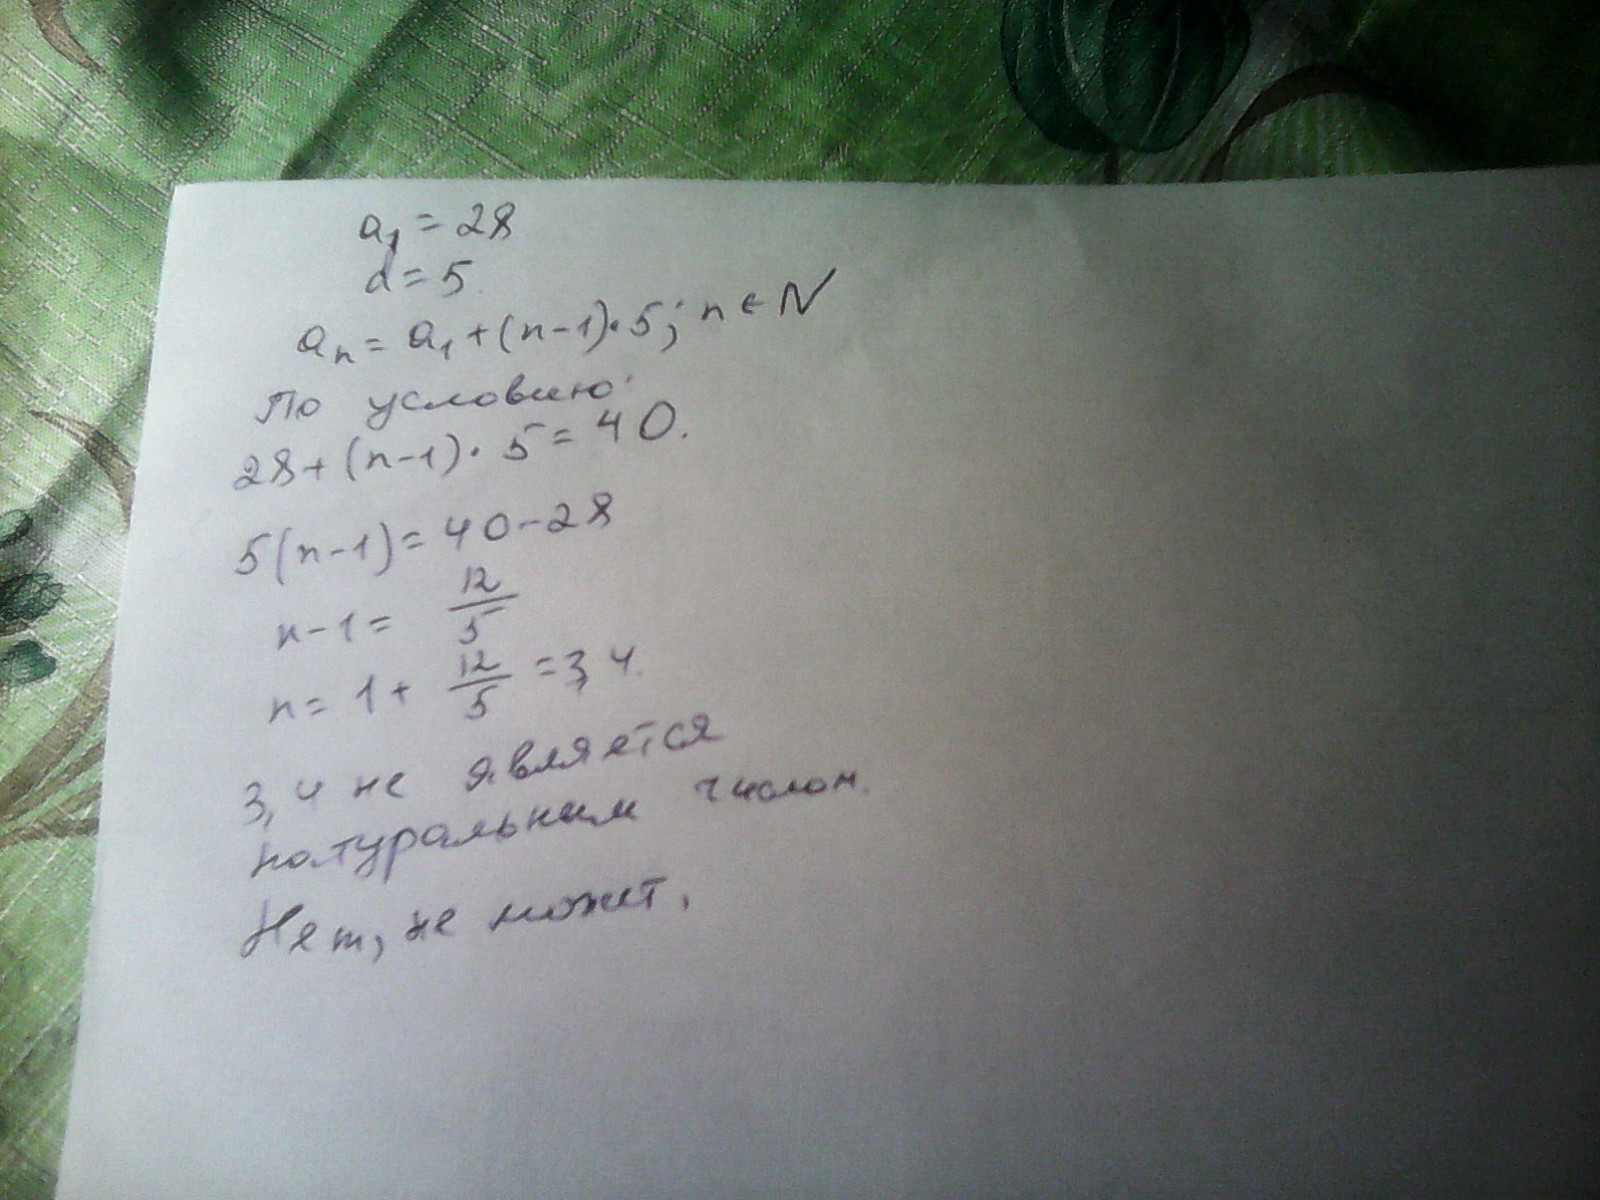 a₁ = 28
d = 5
aₙ = a₁ + (n-1)·5; n ∈ N
По условию:
28 + (n-1)·5 = 40.
5(n-1) = 40-28
n-1 = 12/5
n = 1 + 12/5 = 3,4.
3,4 не является
натуральным числом.
Нет, не может.